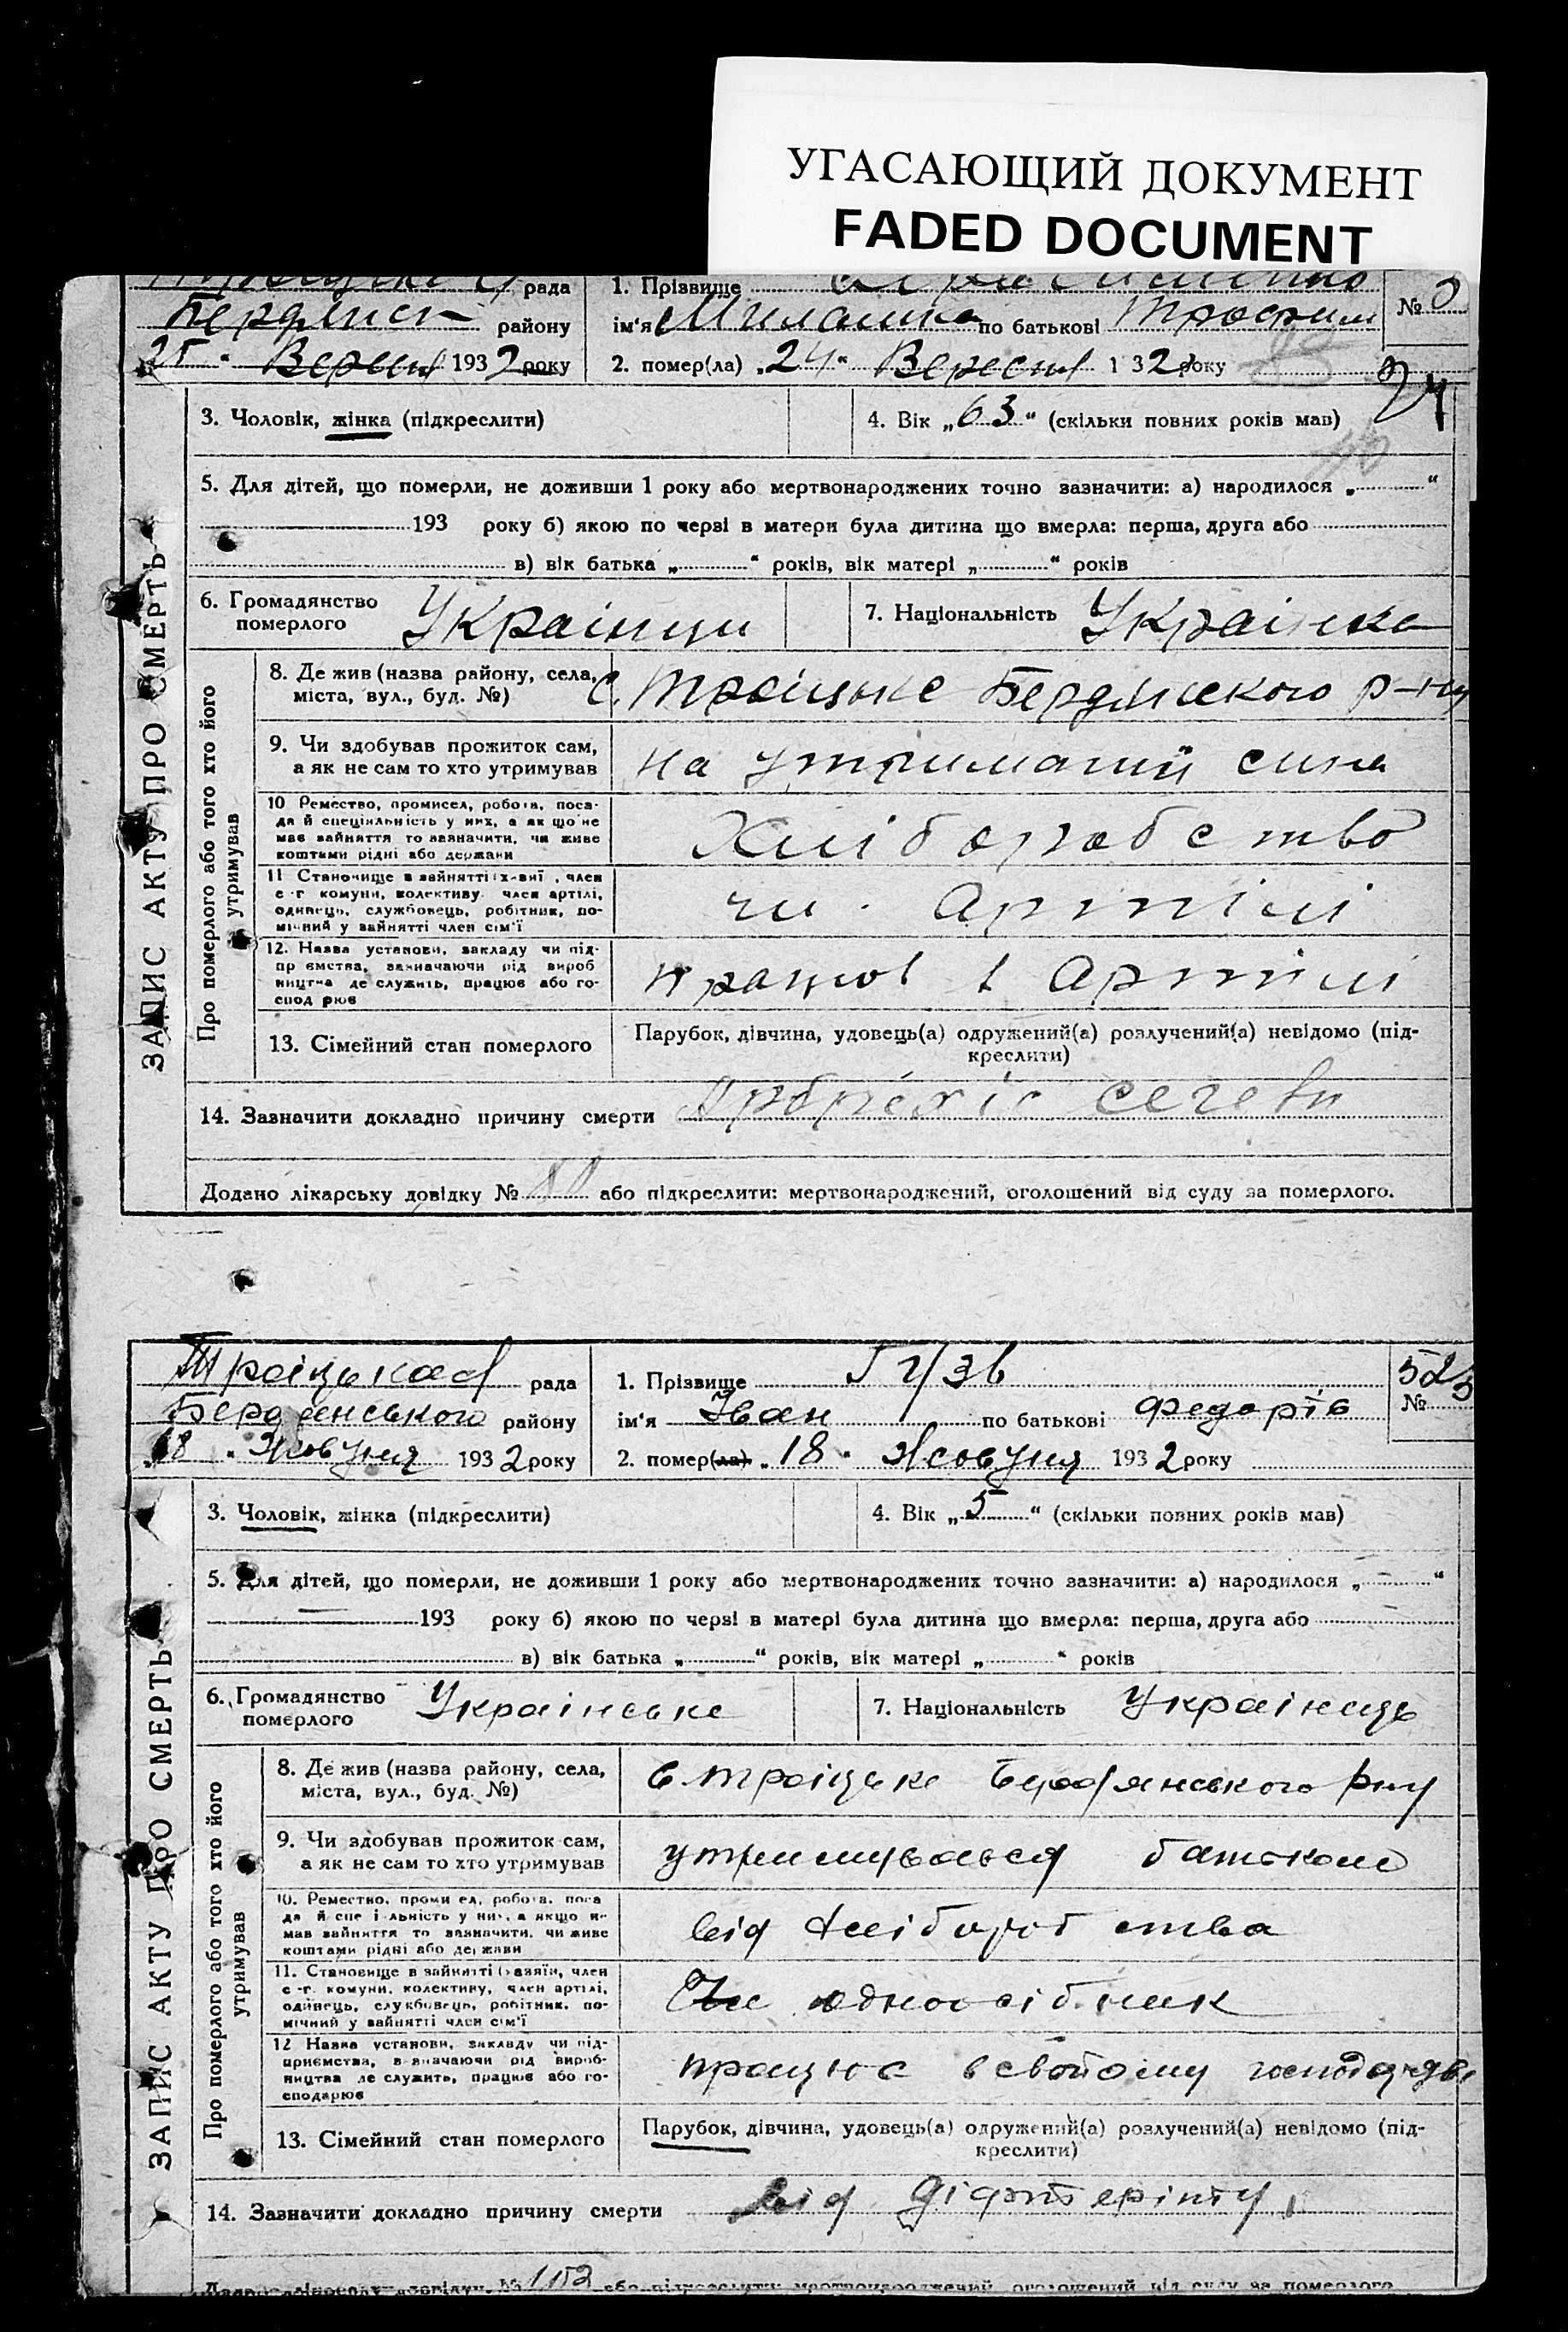 УГАСАЮЩИЙ ДОКУМЕНТ
FADED DOCUMENT
рада
1. Прізвище
Бердянськ району
ім'я по батькові Трофим
№
25 " Вересня 1932 року
2. помер(ла) „24" Вересня 1 32 року
24
3. Чоловік, жінка (підкреслити)
4. Вік „63" (скільки повних років мав)
5. Для дітей, що померли, не доживши 1 року або мертвонароджених точно зазначити: а) народилося „ "
193 року б) якою по черзі в матери була дитина що вмерла: перша, друга або
в) вік батька „ " років, вік матері „ " років
6. Громадянство
померлого
Українци
7. Національність Українка
8. Де жив (назва району, села,
міста, вул., буд. №)
с. Троіцьке Бердянского р-ну
9. Чи здобував прожиток сам,
а як не сам то хто утримував
на утриманий сина
10 Ремество, промисел, робота, поса-
да й спеціяльність у них, а як що не
мав зайняття то зазначити, чи живе
коштами рідні або держави
Хліборобство
11 Становище в зайнятті , член
с -г комуни, колективу член артілі,
одинець, службовець, робітник, по-
мічний у зайнятті член сім'ї
чл. Артілі
12. Назва установи, закладу чи під-
пр ємства, зазначаючи рід вироб
ництва де служить, працює або го-
спод рює
в Артілі
13. Сімейний стан померлого
Парубок, дівчина, удовець(а) одружений(а) розлучений(а) невідомо (під-
креслити)
14. Зазначити докладно причину смерти
Додано лікарську довідку № або підкреслити: мертвонароджений, оголошений від суду за померлого.
ЗАПИС АКТУ ПРО СМЕРТЬ
Про померлого або того хто його
утримував
Троіцькая рада
1. Прізвище
523
Бердянського району
ім'я Іван по батькові Федорів
№
18 " Жовтня 1932 року
2. помер(ла) „18" Жовтня 1932 року
3. Чоловік, жінка (підкреслити)
4. Вік „5" (скільки повних років мав)
5. Для дітей, що померли, не доживши 1 року або мертвонароджених точно зазначити: а) народилося „ "
193 року б) якою по черзі в матері була дитина що вмерла: перша, друга або
в) вік батька „ " років, вік матері „ " років
6. Громадянство
померлого
Українське
7. Національність Українець
8. Де жив (назва району, села,
міста, вул., буд. №)
с. Троіцьке Бердянського рну
9. Чи здобував прожиток сам,
а як не сам то хто утримував
утримувався батьком
10. Ремество, проми ел, робота, поса
да й спе і льність у них, а якщо не
мав зайняття то зазначити, чи живе
коштами рідні або держави
від хліборобства
11. Становище в зайнятті (хазяїн, член
с -г. комуни, колективу, член артілі,
одинець, службовець, робітник, по-
мічний у зайнятті член сім'ї
одноосібник
12 Назва установи, закладу чи під-
приємства, зазначаючи рід вироб-
ництва де служить, працює або го-
сподарює
працює в свойому
13. Сімейний стан померлого
Парубок, дівчина, удовець(а) одружений(а) розлучений(а) невідомо (під-
креслити)
14. Зазначити докладно причину смерти від
№ 1153 або підкреслити: мертвонароджений, оголошений від суду за померлого
ЗАПИС АКТУ ПРО СМЕРТЬ
Про померлого або того хто його
утримував